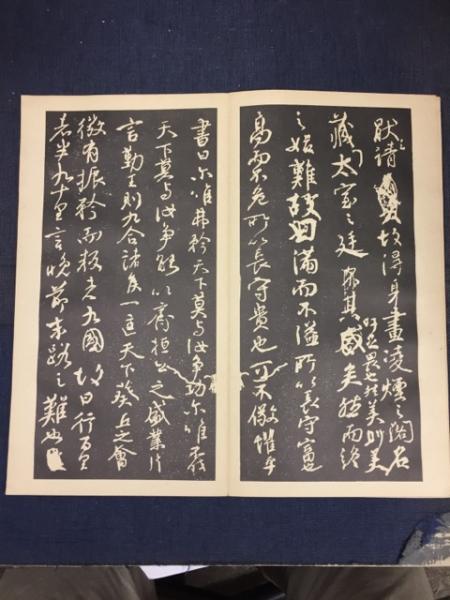 故得身畫凌煙之閣名
藏太室之廷
吁足畏也然美則美
矣然而終
之始難故曰滿而不溢所以長守富也
高而不危所以長守貴也可不儆懼乎
書曰爾唯弗矜天下莫與汝爭功爾唯不伐
天下莫與汝爭能以齊桓公之盛業片
言勤王則九合諸侯一匡天下葵丘之會
微有振矜而叛者九國故曰行百里
者半九十里言晚節末路之難也